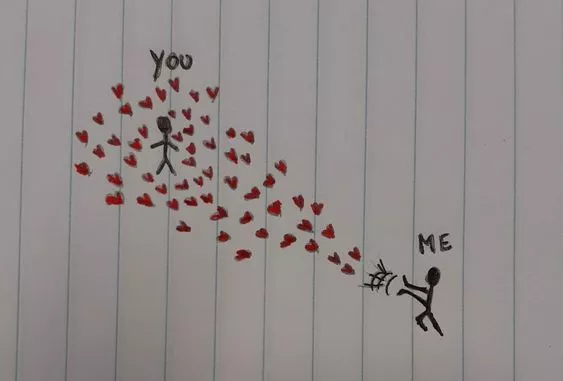 YOU
ME